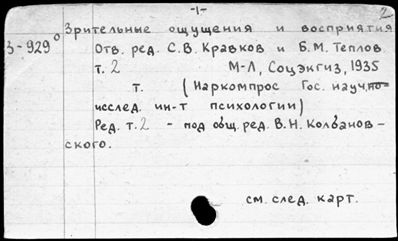 -1-
2
Зрительные ощущения и восприятия
3-929⁰ Отв. ред. С.В. Кравков и Б.М. Теплов.
т. 2 М-Л, Соцэкгиз, 1935
т. (Наркомпрос Гос. научно-
исслед. ин-т психологии)
Ред. т. 2 - под общ. ред. В.Н. Колбанов-
ского.
см. след. карт.